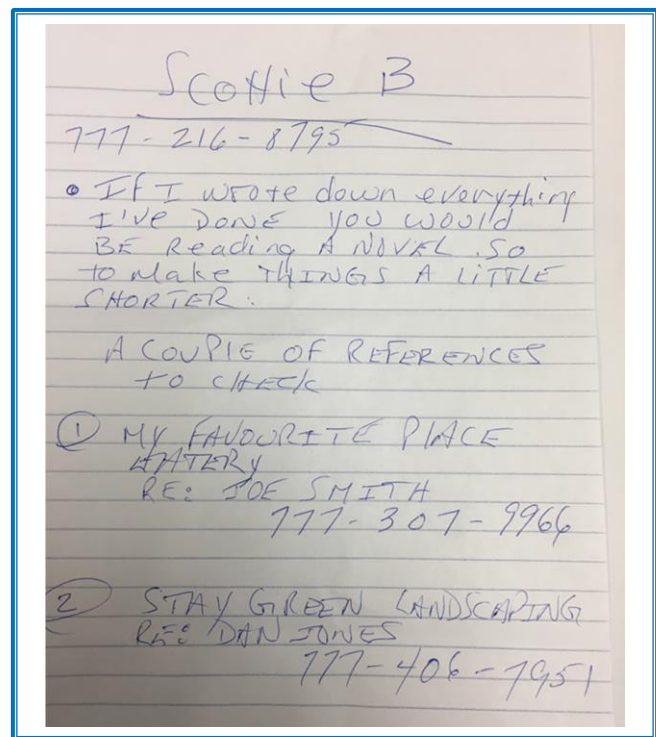 Scottie B
777-216-8795
• If I wrote down everything
I've DONE you would
BE Reading A NOVEL. SO
to Make THINGS A LITTLE
SHORTER:
A COUPLE OF REFERENCES
to CHECK
① MY FAVOURITE PLACE
EATERY
RE: JOE SMITH
777-307-9966
② STAY GREEN LANDSCAPING
RE: DAN JONES
777-406-7951